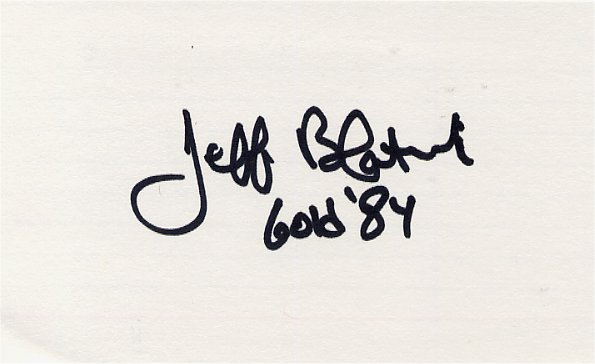 Jeff Blatnick
Gold '84